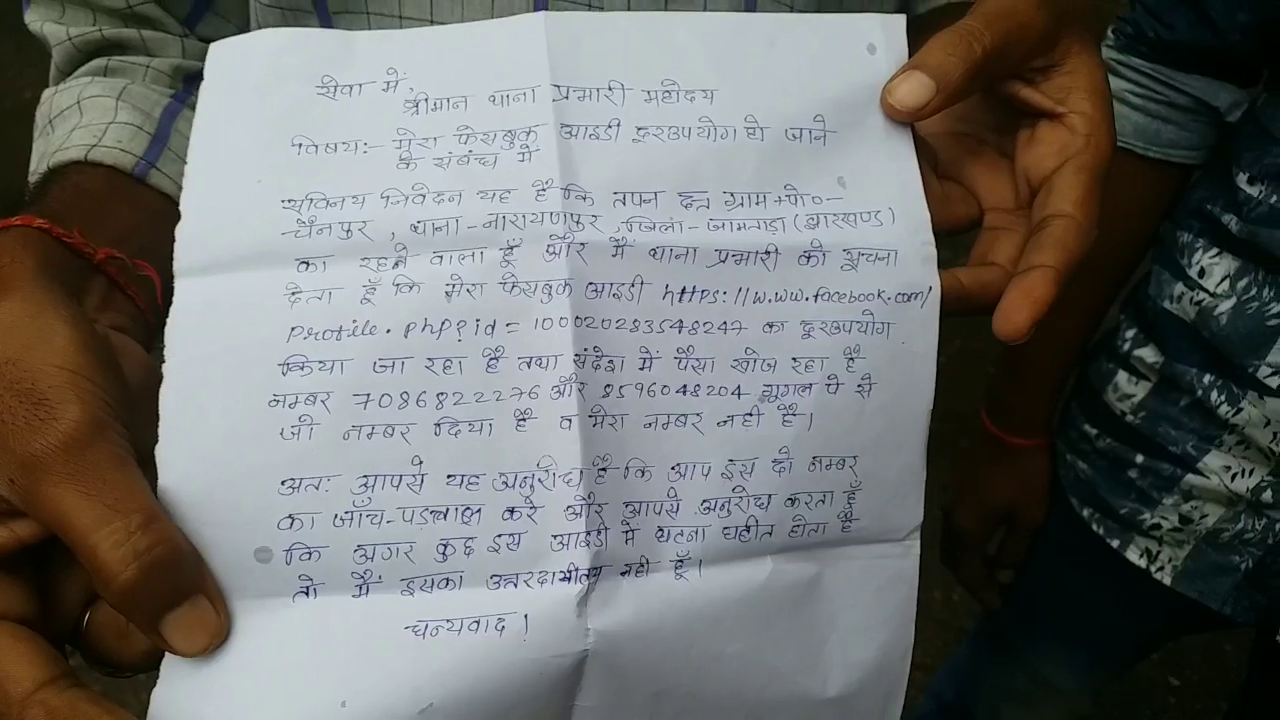 सेवा में,
श्रीमान थाना प्रभारी महोदय
विषय:- मेरा फेसबुक आइडी दूरउपयोग हो जाने
के संबंध में
सविनय निवेदन यह है कि तपन दत्त ग्राम+पो०-
चैनपुर, थाना-नारायणपुर, जिला-जामताड़ा (झारखण्ड)
का रहने वाला हूँ और मैं थाना प्रभारी को सूचना
देता हूँ कि मेरा फेसबुक आइडी https://www.facebook.com/
profile.php?id=100020283548247 का दूरउपयोग
किया जा रहा है तथा संदेश में पैसा खोज रहा है
नम्बर 7086822276 और 8596048204 गूगल पे से
जो नम्बर दिया है व मेरा नम्बर नही है।
अतः आपसे यह अनुरोध है कि आप इस दो नम्बर
का जाँच-पड़ताल करे और आपसे अनुरोध करता हूँ
कि अगर कुछ इस आइडी में घटना घहीत होता है
तो मैं इसका उत्तरदायीत्व नही हूँ।
धन्यवाद!